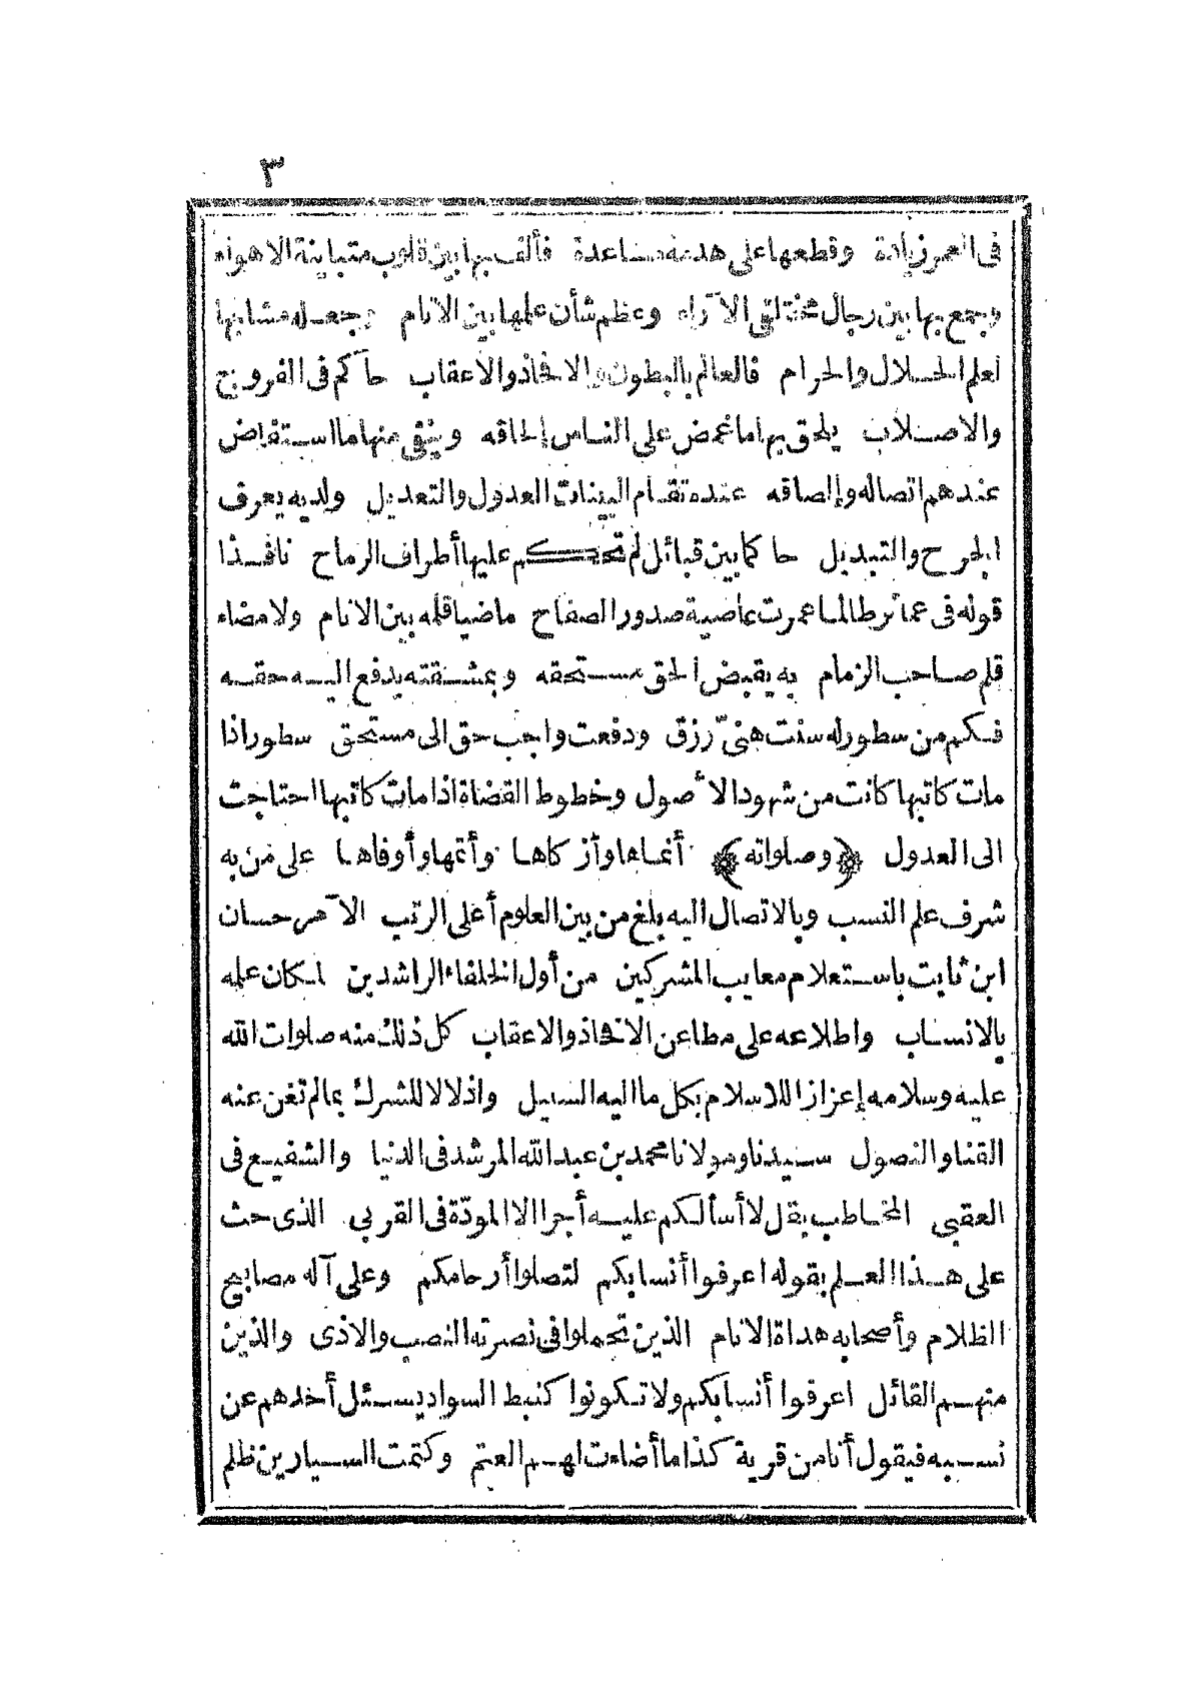 ٣
فى العمر زيادة وقطعها على هدمه مساعدة فألف بها بين قلوب متباينة الاهواء
وجمع بها بين رجال مختلفى الآراء وعظم شأن علمها بين الانام وجعله مشابها
لعلم الحلال والحرام فالعالم بالبطون والافخاذ والاعقاب حاكم فى الفروج
والاصلاب يلحق بها ما غمض على الناس إلحاقه وينفى منها ما استفاض
عندهم اتصاله وإلصاقه عنده تقام البينات العدول والتعديل ولديه يعرف
الجرح والتبديل حاكما بين قبائل لم تحكم عليها أطراف الرماح نافذا
قوله فى عمائر طالما عمرت عاضية صدور الصفاح ماضيا قلمه بين الانام ولا مضاء
قلم صاحب الزمام به يقبض الحق مستحقه وبمشقته يدفع اليه حقه
فكم من سطور له سنت هنىّ رزق ودفعت واجب حق الى مستحق سطور اذا
مات كاتبها كانت من شهود الأصول وخطوط القضاة اذا مات كاتبها احتاجت
الى العدول ﴿وصلواته﴾ أنماها وأزكاها وأتمها وأوفاها على من به
شرف علم النسب وبالاتصال اليه بلغ من بين العلوم أعلى الرتب الآمر حسان
ابن ثابت باستعلام معايب المشركين من أول الخلفاء الراشدين لمكان علمه
بالانساب واطلاعه على مطاعن الافخاذ والاعقاب كل ذلك منه صلوات الله
عليه وسلامه إعزازا للاسلام بكل ما اليه السبيل واذلالا للشرك بمالم تغن عنه
القنا والنصول سيدنا ومولانا محمد بن عبد الله المرشد فى الدنيا والشفيع فى
العقبى المخاطب بقل لا أسألكم عليه أجرا الا المودّة فى القربى الذى حث
على هذا العلم بقوله اعرفوا أنسابكم لتصلوا أرحامكم وعلى آله مصابيح
الظلام وأصحابه هداة الانام الذين تحملوا فى نصرته النصب والاذى والذين
منهم القائل اعرفوا أنسابكم ولا تكونوا كنبط السواد يسئل أحدهم عن
نسبه فيقول أنا من قرية كذا ما أضاءت لهم العتم وكتمت السيارين ظلم